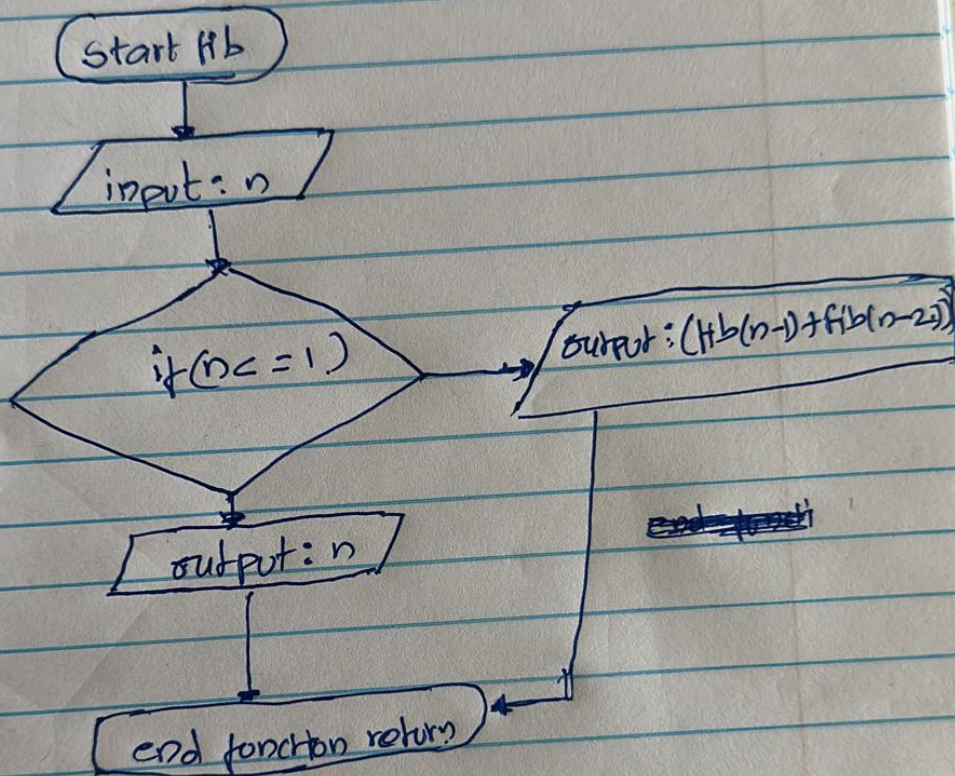 start fib
input: n
if(n<=1)
output:(fib(n-1)+fib(n-2))
output: n
end function return